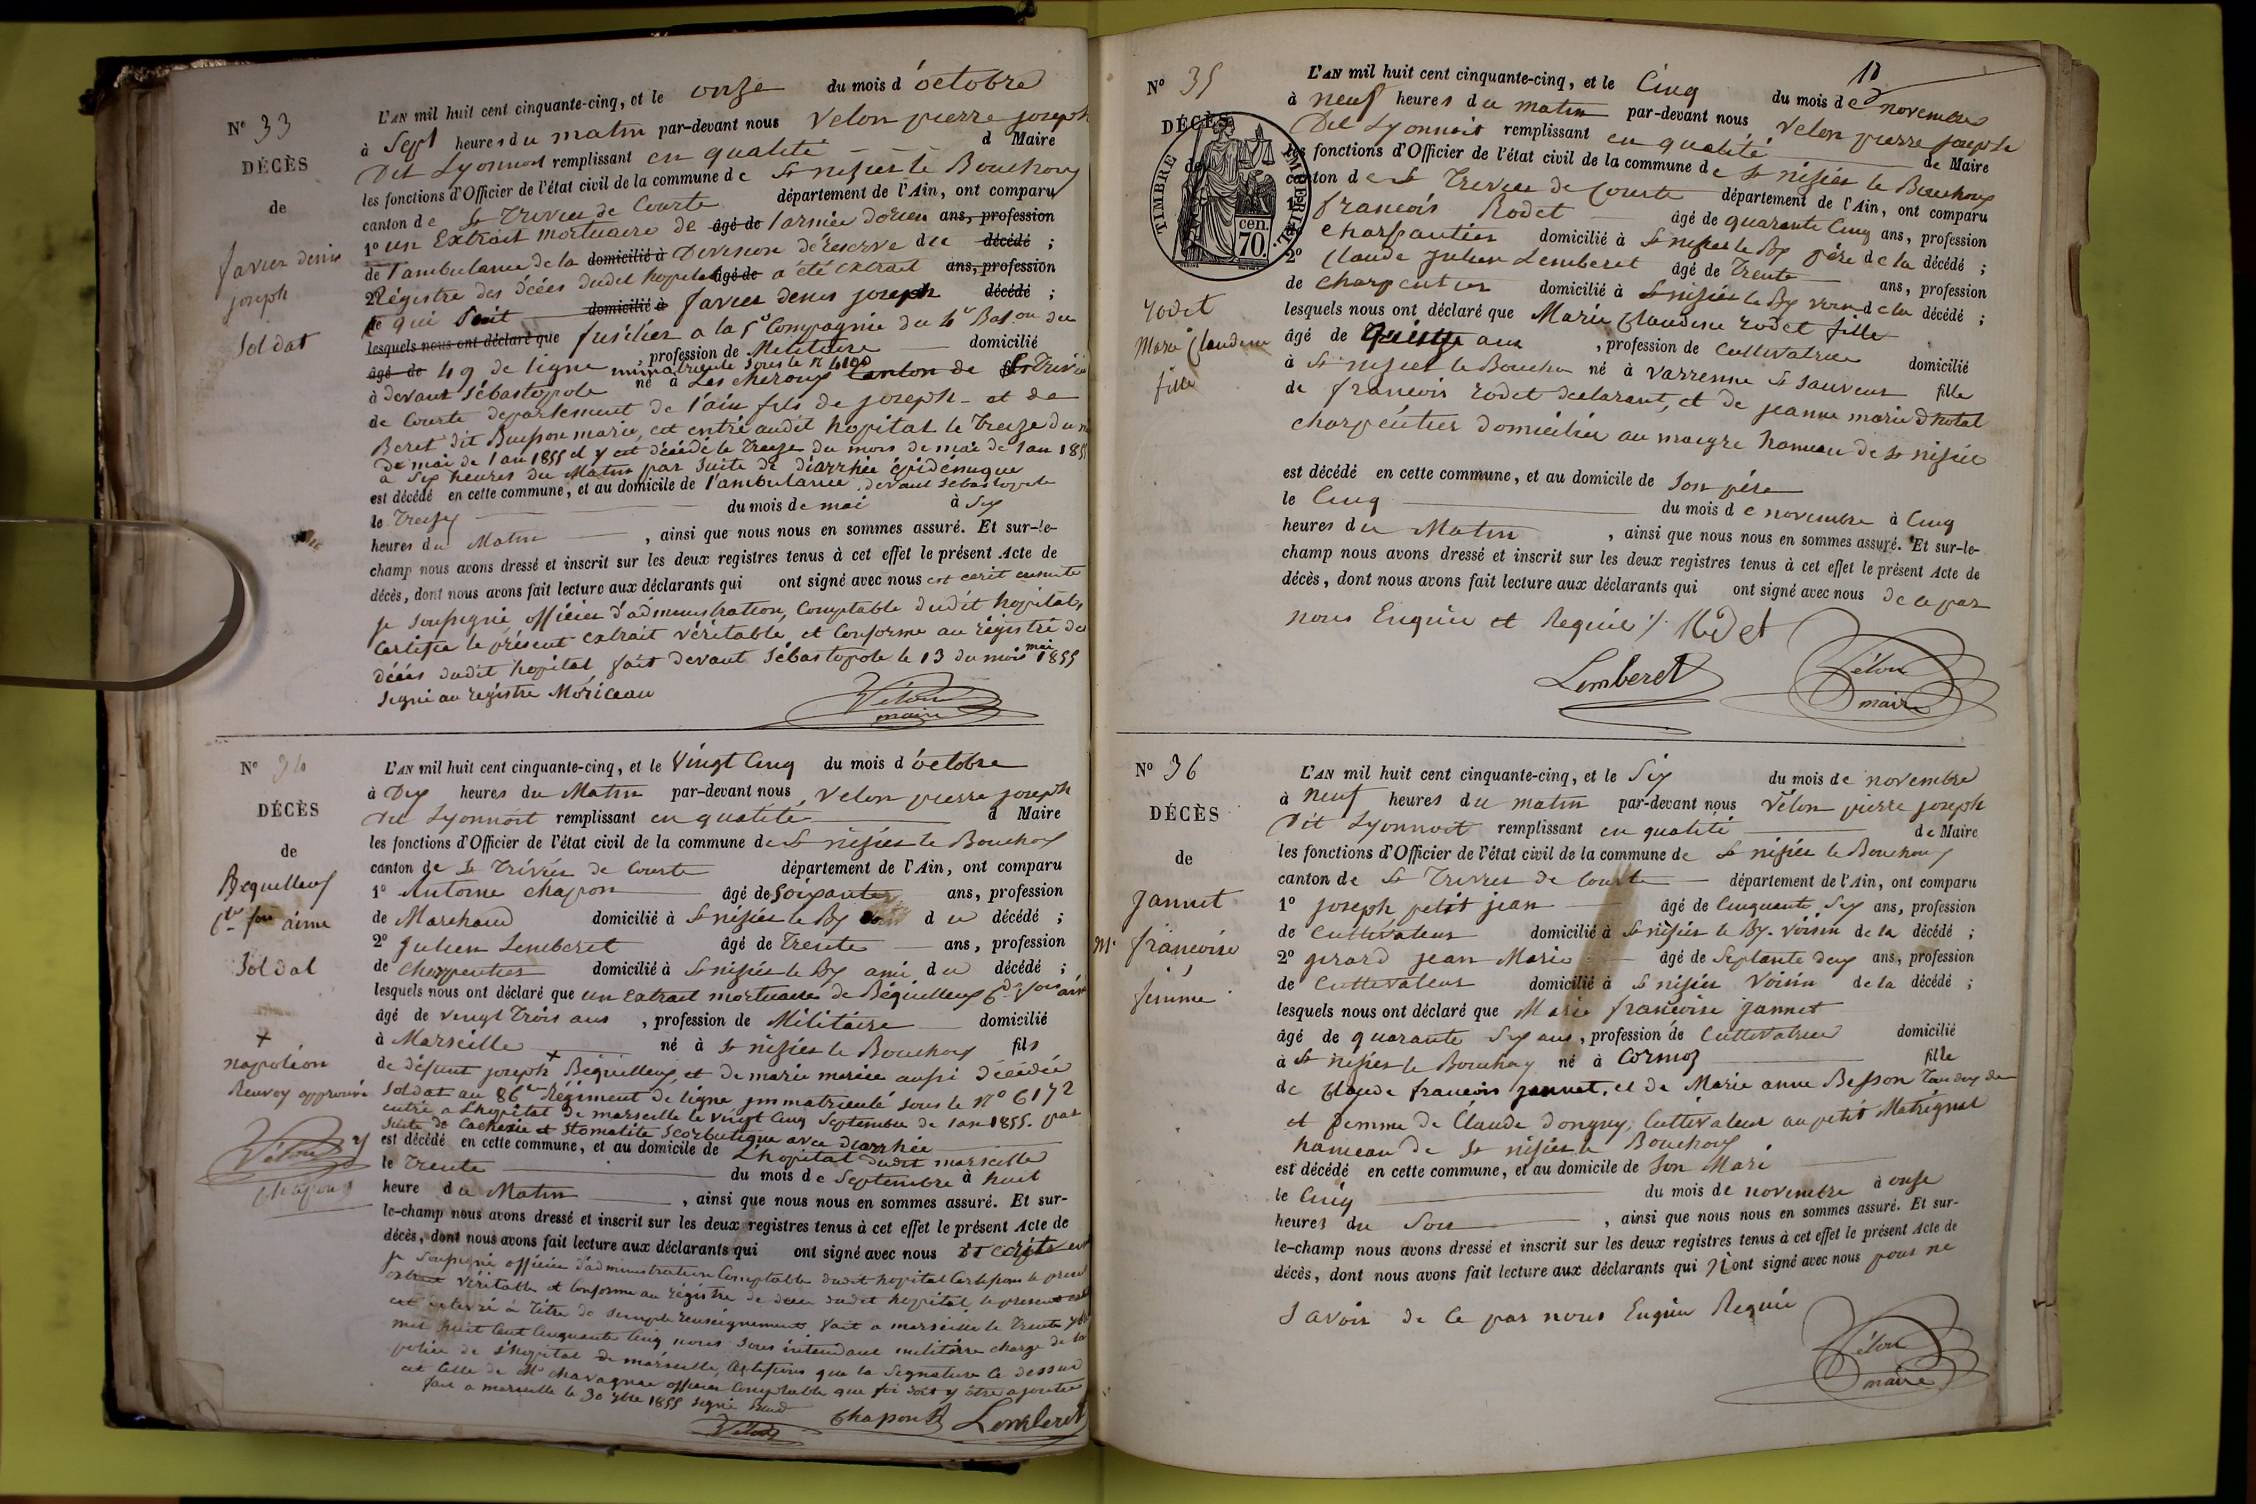 N° 33
DÉCÈS
de
favier denis
joseph
Soldat
L'AN mil huit cent cinquante-cinq, et le onze du mois d'octobre
à Sept heures du matin par-devant nous Velon pierre joseph
Dit Lyonnoit remplissant en qualité d Maire
les fonctions d'Officier de l'état civil de la commune de St nisier le Bouchoux
canton de St Trivier de Courte département de l'Ain, ont comparu
1° un Extrait mortuaire de âgé de l'armée d'orien ans, profession
de l'ambulance de la domicilié à Division de reserve du décédé ;
2° Régistre des décès dudit hopital âgé de a été extrait ans, profession
de qui Suit domicilié à favier denis joseph décédé ;
lesquels nous ont déclaré que fusilier a la 5e Compagnie du 4e Baton du
âgé de 49 de ligne immatriculé sous le N , profession de Militaire domicilié
à devant Sébastopole né à Lescheroux Canton de St Trivier
de Courte departement de l'ain fils de joseph et de
Beret dit Buisson marie, est entré audit hopital le Treize du
de mai de l'an 1855 et y est décédé le Treize du mois de mai de l'an 1855
a Six heures du Matin par suite de diarrhée épidémique
est décédé en cette commune, et au domicile de l'ambulance devant Sébastopole
le Treize du mois de mai à Six
heures du Matin , ainsi que nous nous en sommes assuré. Et sur-le-
champ nous avons dressé et inscrit sur les deux registres tenus à cet effet le présent Acte de
décès, dont nous avons fait lecture aux déclarants qui ont signé avec nous est écrit ensuite
je soussigné officier d'administration, Comptable dudit hopital,
Certifie le présent extrait véritable et Conforme au régistre de
décès dudit hopital fait devant Sébastopole le 13 du mois mai 1855
Signé au registre Moriceau
Vélon
maire
N° 34
DÉCÈS
de
Bequilleux
aime
Soldat
+
napoléon
Renvoy approuvé
Vélon
Chapon
L'AN mil huit cent cinquante-cinq, et le Vingt Cinq du mois d'octobre
à Dix heures du Matin par-devant nous Velon pierre joseph
Dit Lyonnoit remplissant en qualité d Maire
les fonctions d'Officier de l'état civil de la commune de St nisier le Bouchoux
canton de St Trivier de Courte département de l'Ain, ont comparu
1° Antoine chapon âgé de Soixante ans, profession
de Marchand domicilié à St nisier le Bx du décédé ;
2° Julien Lemberet âgé de Trente ans, profession
de Charpentier domicilié à St nisier le Bx ami du décédé ;
lesquels nous ont déclaré que un Extrait mortuaire de Béquilleux
âgé de vingt Trois ans , profession de Militaire domicilié
à Marseille + né à St nisier le Bouchoux fils
de défunt joseph Béquilleux, et de marie aussi décédée
Soldat au 86e Régiment de ligne immatriculé sous le N° 6172
entré a L'hopital de marseille le vingt Cinq Septembre de l'an 1855. par
Suite de Cachexie et Stomatite Scorbutique avec diarrhée
est décédé en cette commune, et au domicile de L'hopital dudit marseille
le Trente du mois de Septembre à huit
heure du Matin , ainsi que nous nous en sommes assuré. Et sur-
le-champ nous avons dressé et inscrit sur les deux registres tenus à cet effet le présent Acte de
décès, dont nous avons fait lecture aux déclarants qui ont signé avec nous
je soussigné officier d'administration Comptable dudit hopital Certifions le
extrait véritable et Conforme au régistre de décès dudit hopital, le présent
est délivré à Titre de Simple renseignement fait a marseille le Trente
mil huit Cent Cinquante Cinq nous sous intendant militaire chargé de la
police de l'hopital de marseille, Certifions que la Signature Ci dessus
est Celle de Mr chavagnac officier Comptable que foi doit y être ajoutée
fait a marseille le 30 7bre 1855 signé
Vélon
Chapon
Lemberet
18
N° 35
DÉCÈS
de
TIMBRE IMPERIAL
cen.
70.
rodet
Marie Claudine
fille
L'AN mil huit cent cinquante-cinq, et le Cinq du mois de novembre
à neuf heures du matin par-devant nous Velon pierre joseph
Dit Lyonnoit remplissant en qualité de Maire
les fonctions d'Officier de l'état civil de la commune de St nisier le Bouchoux
canton de St Trivier de Courte département de l'Ain, ont comparu
1° françois Rodet âgé de quarante Cinq ans, profession
charpentier domicilié à St nisier le Bx père de la décédé ;
2° Claude Julien Lemberet âgé de Trente ans, profession
de charpentier domicilié à St nisier le Bx voisin de la décédé ;
lesquels nous ont déclaré que Marie Claudine rodet fille
âgé de Quinze ans , profession de Cultivatrice domicilié
à St nisier le Bouchou né à Varrenne St Sauveur fille
de françois rodet declarant, et de jeanne marie
charpentier domicilié au maigre hameau de St nisier
est décédé en cette commune, et au domicile de Son père
le Cinq du mois de novembre à Cinq
heures du Matin , ainsi que nous nous en sommes assuré. Et sur-le-
champ nous avons dressé et inscrit sur les deux registres tenus à cet effet le présent Acte de
décès, dont nous avons fait lecture aux déclarants qui ont signé avec nous de ce par
nous Enquie et Requie /. Rodet
Lemberet
Vélon
maire
N° 36
DÉCÈS
de
Jannet
Me françoise
femme
L'AN mil huit cent cinquante-cinq, et le Six du mois de novembre
à neuf heures du matin par-devant nous Vélon pierre joseph
Dit Lyonnoit remplissant en qualité de Maire
les fonctions d'Officier de l'état civil de la commune de St nisier le Bouchoux
canton de St Trivier de Courte département de l'Ain, ont comparu
1° joseph petit jean âgé de Cinquante Six ans, profession
de Cultivateur domicilié à St nisier le Bx. Voisin de la décédé ;
2° girard jean Marie âgé de Septante deux ans, profession
de Cultivateur domicilié à St nisier Voisin de la décédé ;
lesquels nous ont déclaré que Marie françoise jannet
âgé de quarante Six ans , profession de Cultivatrice domicilié
à St nisier le Bouchoux né à Cormoz fille
de Claude françois jannet, et de Marie anne Besson
et femme de Claude dongny, Cultivateur au petit Matrignat
hameau de St nisier le Bouchoux
est décédé en cette commune, et au domicile de Son Mari
le Cinq du mois de novembre à onze
heures du Soir , ainsi que nous nous en sommes assuré. Et sur-
le-champ nous avons dressé et inscrit sur les deux registres tenus à cet effet le présent Acte de
décès, dont nous avons fait lecture aux déclarants qui n'ont signé avec nous pour ne
Savoir de Ce par nous Enquie Requie
Vélon
maire